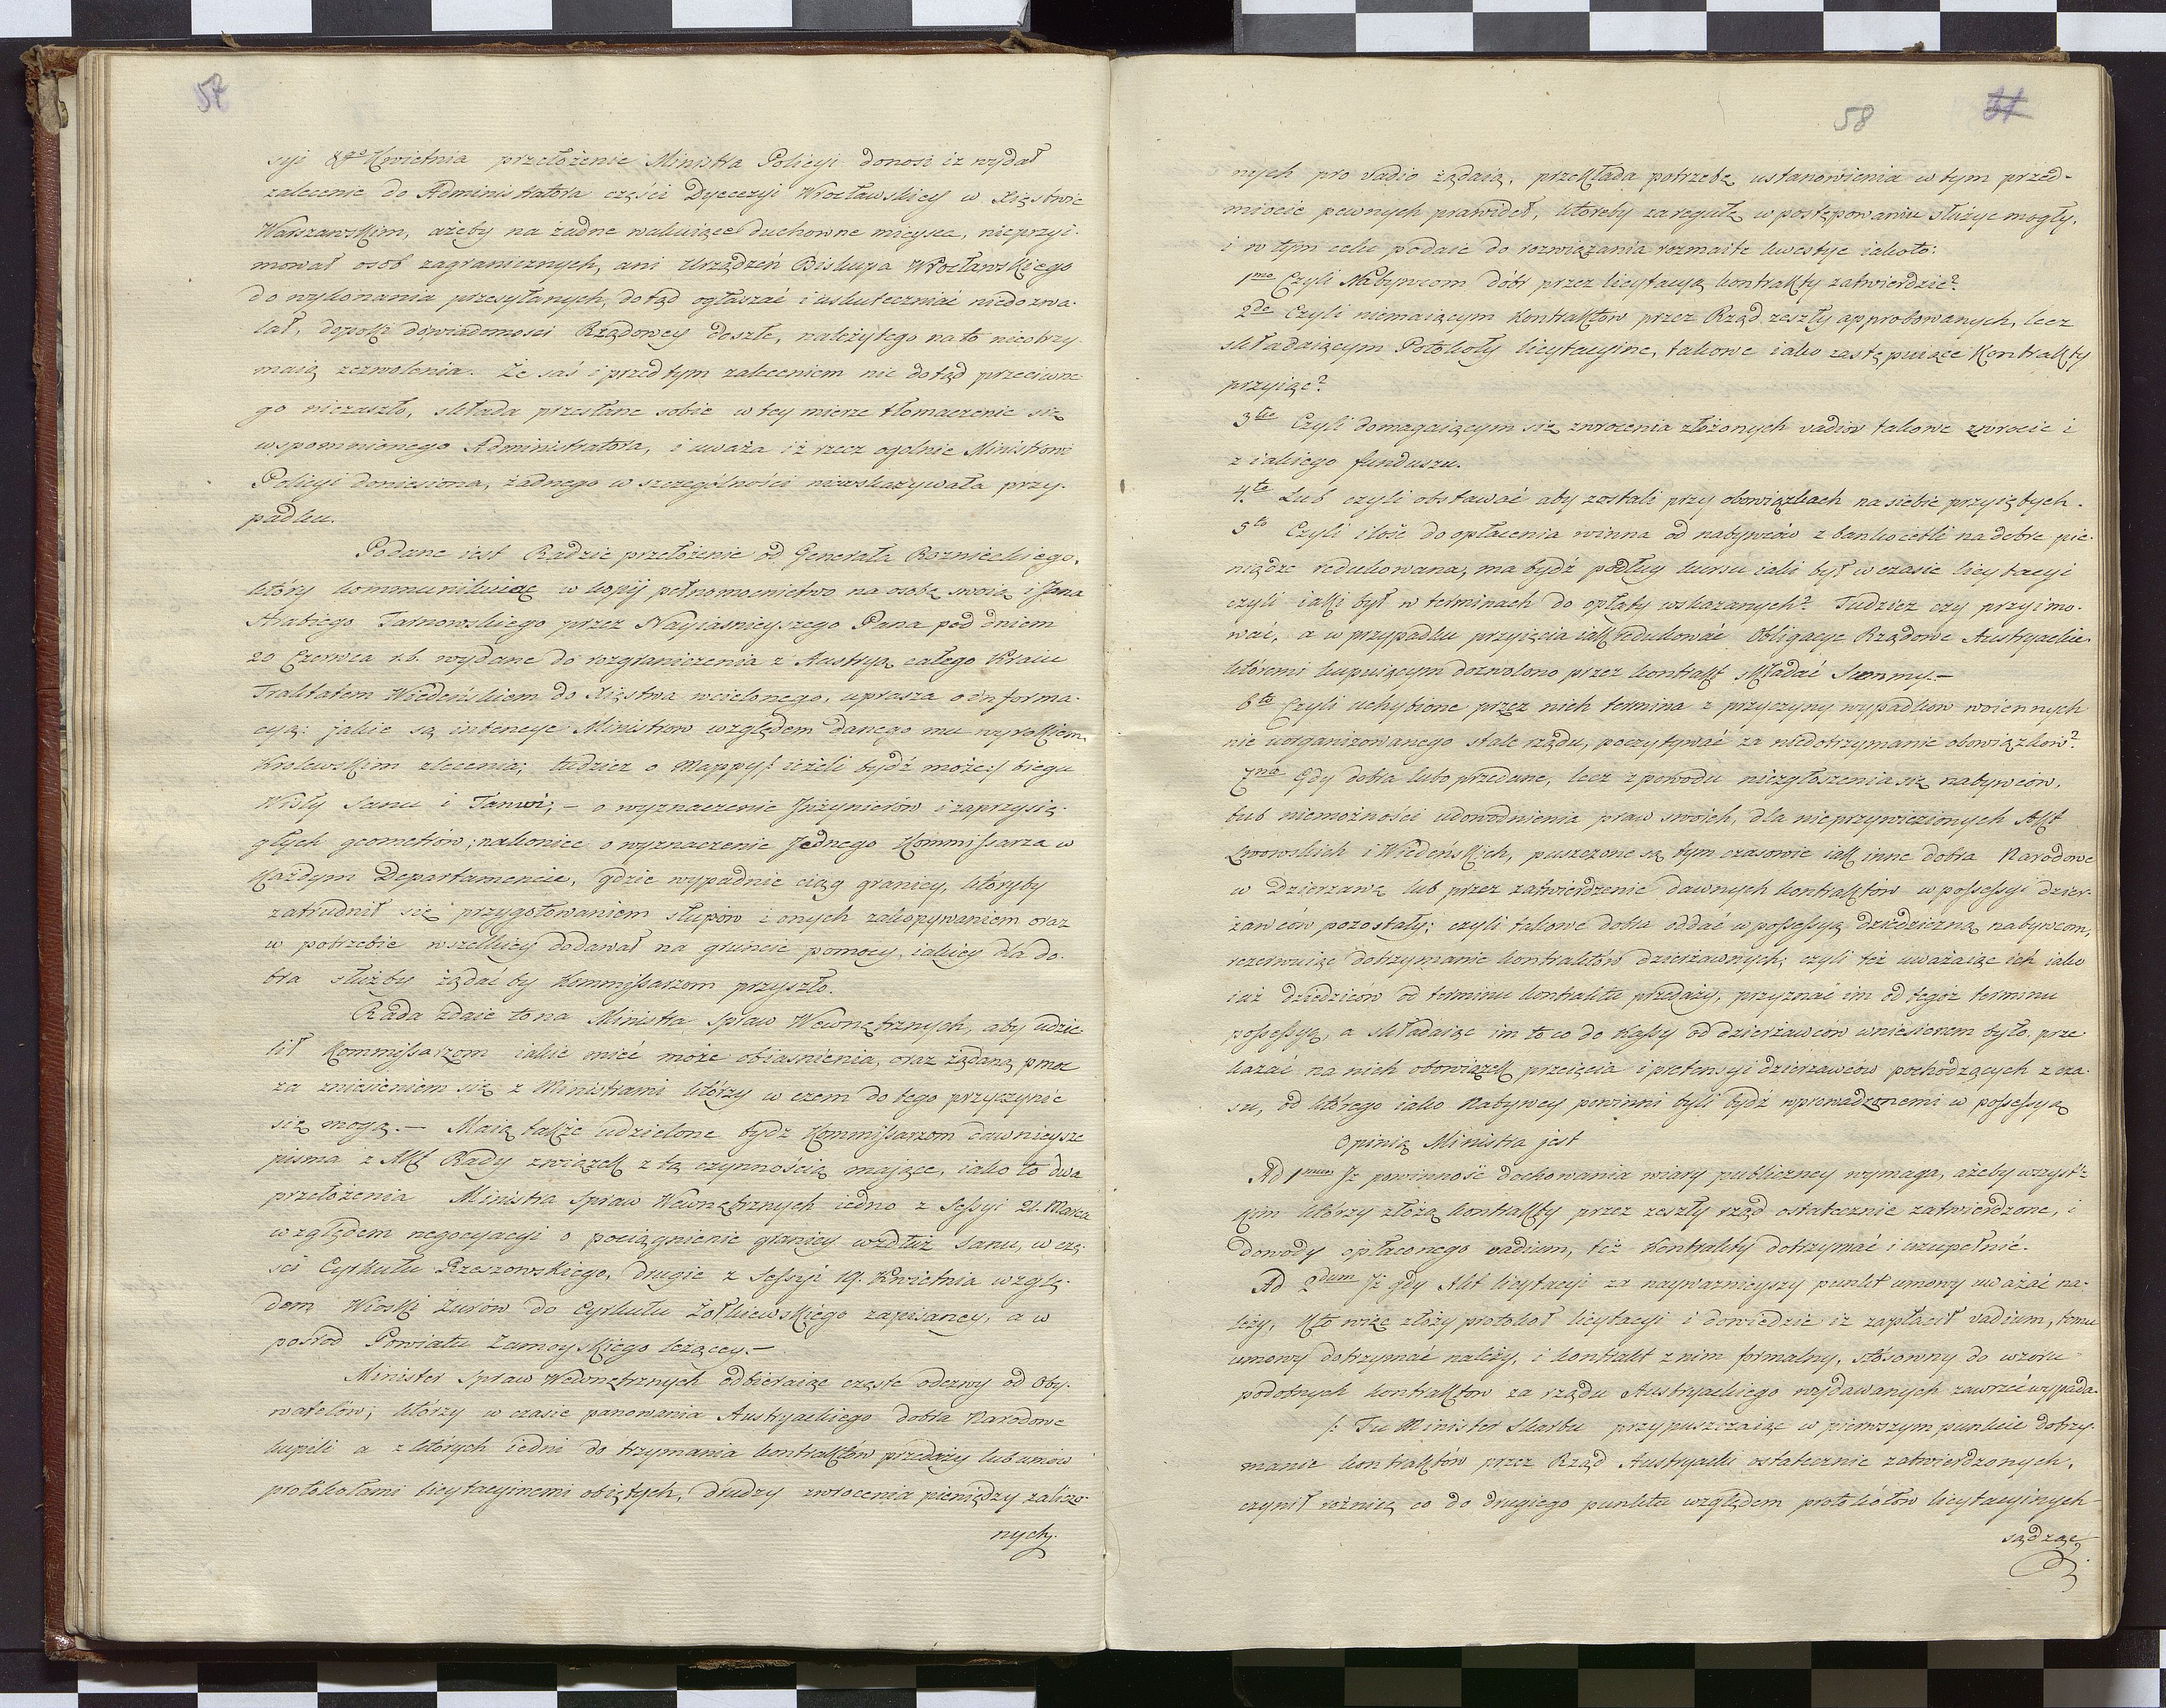 57
syi 24º Kwietnia przełożenie Ministra Policyi donosi iż wydał
zalecenie do Administratora części Dyecezyi Wrocławskiey w Xięstwie
Warszawskim, ażeby na żadne wakuiące duchowne mieysce, nieprzyi-
mował osób zagranicznych, ani Urządzeń Biskupa Wrocławskiego
do wykonania przesyłanych, dotąd ogłaszać i uskuteczniać niedozwa-
lał, dopoki dowiadomości Rządowey doszłe, należytego na to nieotrzy-
maią zezwolenia. Że zaś i przed tym zaleceniem nic dotąd przeciwne-
go niezaszło, składa przesłane sobie w tey mierze tłomaczenie się
wspomnionego Administratora, i uważa iż rzecz ogolnie Ministrowi
Policyi doniesiona, żadnego w szczególności niewskazywała przy-
padku.
Podane iest Radzie przełożenie od Generała Roznieckiego,
który kommunikuiąc w kopij pełnomocnictwo na osobę swoią i Jana
Hrabiego Tarnowskiego przez Nayiasnieyszego Pana pod dniem
20 Czerwca r.b. wydane do rozgraniczenia z Austryą całego Kraiu
Traktatem Wiedeńskiem do Xięstwa wcielonego, uprasza o informa-
cyą: jakie są intencye Ministrow względem danego mu wyrokiem
Krolewskim zlecenia; tudzież o Mappy /: ieżeli bydź może :/ biegu
Wisły Sanu i Tanwi; – o wyznaczenie Jnżynierów i zaprzysię-
głych geometrów; nakoniec o wyznaczenie Jednego Kommissarza w
Każdym Departamencie, gdzie wypadnie ciąg granicy, któryby
zatrudnił się przygotowaniem słupów i onych zakopywaniem oraz
w potrzebie wszelkiey dodawał na gruncie pomocy, iakiey dla do-
bra służby żądać by Kommissarzom przyszło.
Rada zdaie to na Ministra Spraw Wewnętrznych, aby udzie-
lił Kommissarzom iakie mieć może obiasnienia, oraz żądaną pmoc
za zniesieniem się z Ministrami którzy w czem do tego przyczynić
się mogą. – Maią także udzielone bydź Kommissarzom dawnieysze
pisma z Akt Rady związek z tą czynnością mające, iako to dwa
przełożenia Ministra Spraw Wewnętrznych iedno z Sessyi 21. Marca
względem negocyacyi o pociągnienie granicy wzdłuż Sanu, w czę-
ści Cyrkułu Rzeszowskiego, drugie z Sessyi 19. Kwietnia wzglę-
dem Wioski Żurów do Cyrkułu Żołkiewskiego zapisaney, a w
pośrod Powiatu Zamoyskiego leżącey. –
Minister Spraw Wewnętrznych odbieraiąc częste odezwy od Oby-
watelów, którzy w czasie panowania Austryackiego dobra Narodowe
kupili a z których iedni do trzymania kontraktów przedaży lub umów
protokołami licytacyinemi obiętych, drudzy zwrocenia pieniędzy zaliczo-
nych
58
31
nych pro vadio żądaią, przekłada potrzebę ustanowienia w tym przed-
miocie pewnych prawideł, któreby za regułę w postępowaniu służyć mogły,
i w tym celu podaie do rozwiązania rozmaite kwestye iakoto:
1mo Czyli Nabywcom dóbr przez licytacyą kontrakty zatwierdzić?
2do Czyli niemaiącym kontraktów przez Rząd zeszły approbowanych, lecz
składaiącym Potokoły licytacyine, takowe iako zastępuiące Kontrakty
przyiąć?
3tio Czyli domagaiącym się zwrocenia złożonych vadiów takowe zwrocić i
z iakiego funduszu.
4to Lub czyli obstawać aby zostali przy obowiązkach na siebie przyiętych.
5to Czyli ilość do opłacenia winna od nabywców z bankocetli na dobre pie-
niądze redukowana, ma bydź podług kursu iaki był w czasie licytacyi
czyli iaki był w terminach do opłaty wskazanych? Tudzież czy przyimo-
wać, a w przypadku przyięcia iak redukować Obligacye Rządowe Austryackie
któremi kupuiącym dozwolono przez kontrakt składać Summy. –
6to Czyli uchybione przez nich termina z przyczyny wypadków woiennych
nie uorganizowanego stale rządu, poczytywać za niedotrzymanie obowiązków?
7mo Gdy dobra lubo przedane, lecz z powodu niezgłoszenia się nabywców,
lub niemożności udowodnienia praw swoich, dla nieprzywiezionych Akt
Lwowskich i Wiedeńskich, puszczone są tym czasowie iak inne dobra Narodowe
w Dzierzawę lub przez zatwierdzenie dawnych kontraktów w possessyi dzier-
żawców pozostały; czyli takowe dobra oddać w possessyą dziedziczną nabywcom,
rezerwuiąc dotrzymanie kontraktów dzierżawnych; czyli też uważaiąc ich iako
iuż dziedziców od terminu kontraktu przedaży, przyznać im od tegoż terminu
possessyą, a składaiąc im to co do Kassy od dzierżawców wniesionem było, prze-
kazać na nich obowiązek przeięcia i pretensyi dzierzawców pochodzących z cza-
su, od którego iako Nabywcy powinni byli bydź wprowadzonemi w possessyą
Opinią Ministra jest
Ad 1mum Jż powinność dochowania wiary publiczney wymaga, ażeby wszyst-
kim którzy złożą kontrakty przez zeszły rząd ostatecznie zatwierdzone, i
dowody opłaconego vadium, też Kontrakty dotrzymać i uzupełnić.
Ad 2dum Jż gdy Akt licytacyi za naywarnieyszy punkt umowy uważać na-
leży, Kto więc złoży protokoł licytacyi i dowiedzie iż zapłacił vadium, temu
umowy dotrzymać należy, i kontrakt z nim formalny, stosowny do wzoru
podobnych kontraktow za rządu Austryackiego wydawanych zawrzeć wypada.
/: Tu Minister Skarbu przypuszczaiąc w pierwszym punkcie dotrzy-
manie kontraktów przez Rząd Austryacki ostatecznie zatwierdzonych,
czynił rożnicę co do drugiego punktu względem protokółów licytacyinych
sądząc